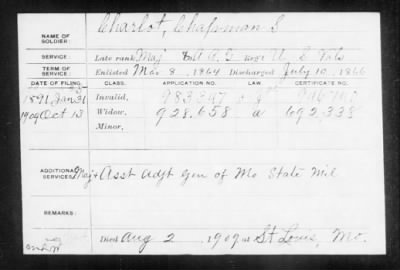 NAME OF SOLDIER: Charlot, Chapman S
SERVICE: Late rank Maj & A A G U S Vols
TERM OF SERVICE: Enlisted Mar 8, 1864 Discharged July 10, 1866
DATE OF FILING. CLASS. APPLICATION NO. LAW CERTIFICATE NO.
1891 Jan 31 Invalid,
1909 Oct 13 Widow, 928.658 692.338
Minor,
ADDITIONAL SERVICES: Maj & Asst Adjt Gen of Mo State Mil
REMARKS:
Died Aug 2, 1909 at St Louis, Mo.